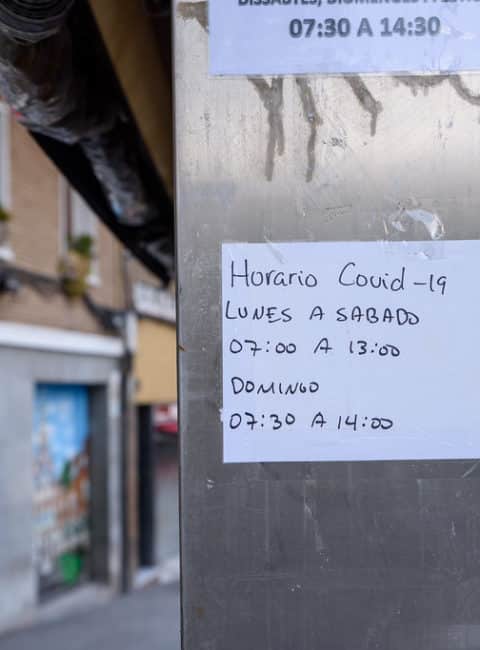 DISSABTES, DIUMENGES
07:30 A 14:30
Horario Covid-19
LUNES A SABADO
07:00 A 13:00
DOMINGO
07:30 A 14:00